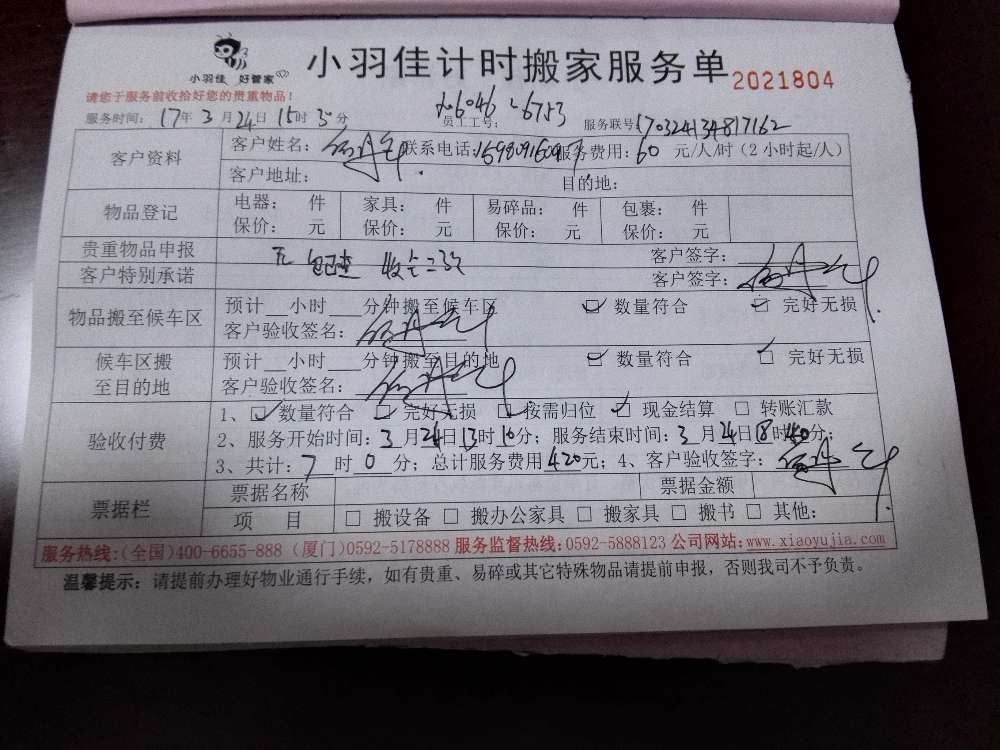 小羽佳 好管家
小羽佳计时搬家服务单 2021804
请您于服务前收拾好您的贵重物品！
服务时间： 17年 3月 24日 15时 30分 员工工号： 6046 6753 服务联号 170324134817162
客户资料 客户姓名： 联系电话： 服务费用：60 元/人/时（2小时起/人）
客户地址： 目的地：
物品登记 电器： 件 家具： 件 易碎品： 件 包裹： 件
保价： 元 保价： 元 保价： 元 保价： 元
贵重物品申报 无 客户签字：
客户特别承诺 客户签字：
物品搬至候车区 预计__小时___分钟搬至候车区 ☑ 数量符合 ☑ 完好无损
客户验收签名：
候车区搬至目的地 预计__小时___分钟搬至目的地 ☑ 数量符合 ☑ 完好无损
客户验收签名：
验收付费 1、☑ 数量符合 ☑ 完好无损 ☑ 按需归位 ☑ 现金结算 □ 转账汇款
2、服务开始时间：3月24日13时10分；服务结束时间：3月24日 时 分；
3、共计：7时0分；总计服务费用420元；4、客户验收签字：
票据栏 票据名称 票据金额
项 目 □ 搬设备 □ 搬办公家具 □ 搬家具 □ 搬书 □ 其他：
服务热线：(全国)400-6655-888（厦门)0592-5178888 服务监督热线：0592-5888123 公司网站：www.xiaoyujia.com
温馨提示：请提前办理好物业通行手续，如有贵重、易碎或其它特殊物品请提前申报，否则我司不予负责。